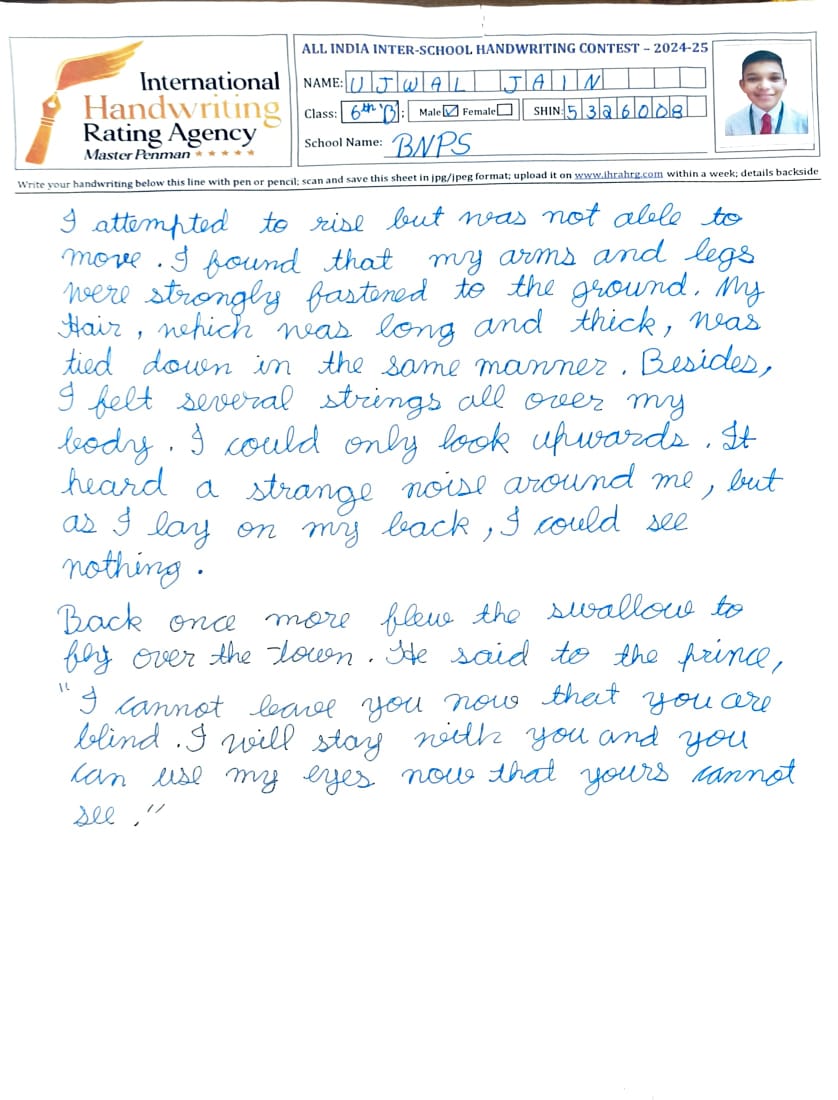 ALL INDIA INTER-SCHOOL HANDWRITING CONTEST – 2024-25
International
Handwriting
Rating Agency
Master Penman ★★★★★
NAME: UJWAL JAIN
Class: 6th 'B' : Male ☑ Female ☐ SHIN: 5326008
School Name: BNPS
Write your handwriting below this line with pen or pencil; scan and save this sheet in jpg/jpeg format; upload it on www.ihrahrg.com within a week; details backside
I attempted to rise but was not able to
move. I found that my arms and legs
were strongly fastened to the ground. My
Hair, which was long and thick, was
tied down in the same manner. Besides,
I felt several strings all over my
body. I could only look upwards. It
heard a strange noise around me, but
as I lay on my back, I could see
nothing.
Back once more flew the swallow to
fly over the town. He said to the prince,
"I cannot leave you now that you are
blind. I will stay with you and you
can use my eyes now that yours cannot
see."